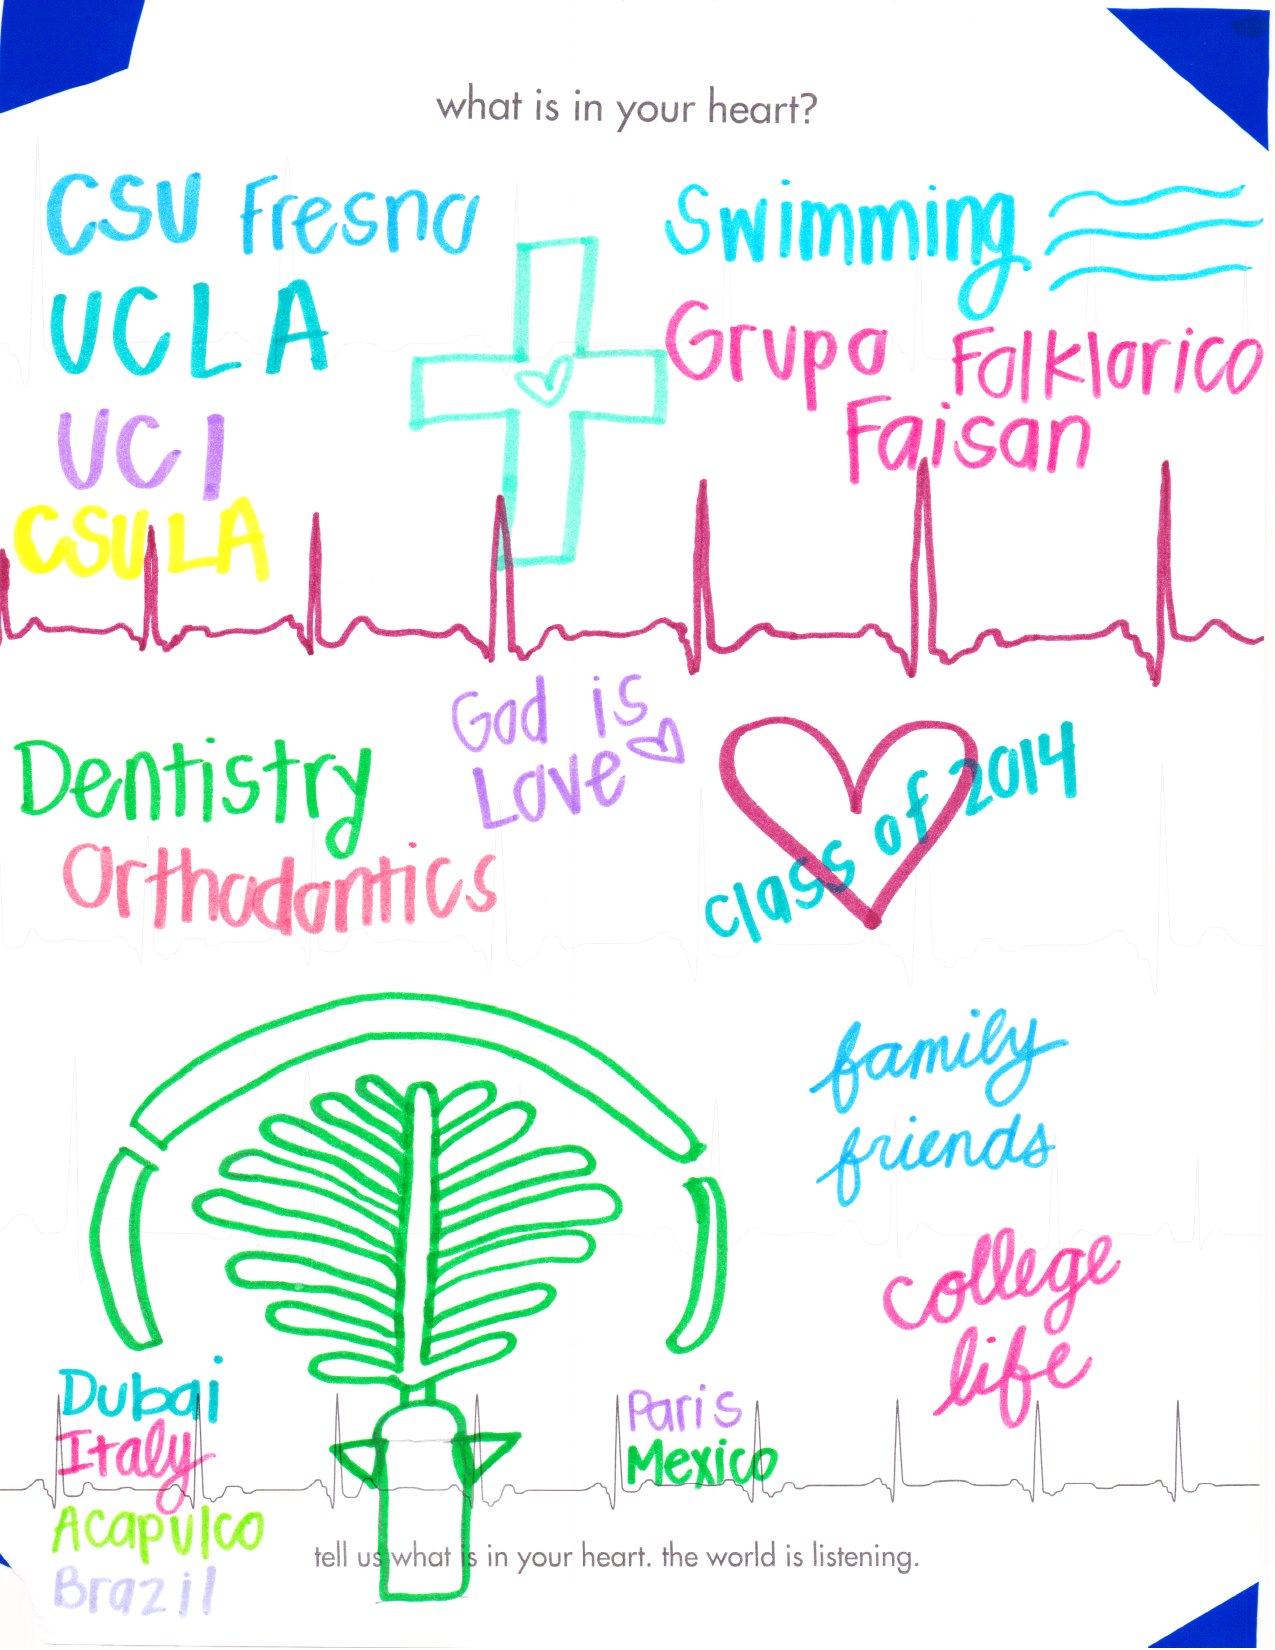 what is in your heart?
CSU Fresno
UCLA
UCI
CSULA
Swimming
Grupo Folklorico
Faisan
God is
Love
Dentistry
Orthodontics
class of 2014
family
friends
college
life
Dubai
Italy
Acapulco
Brazil
Paris
Mexico
tell us what is in your heart. the world is listening.